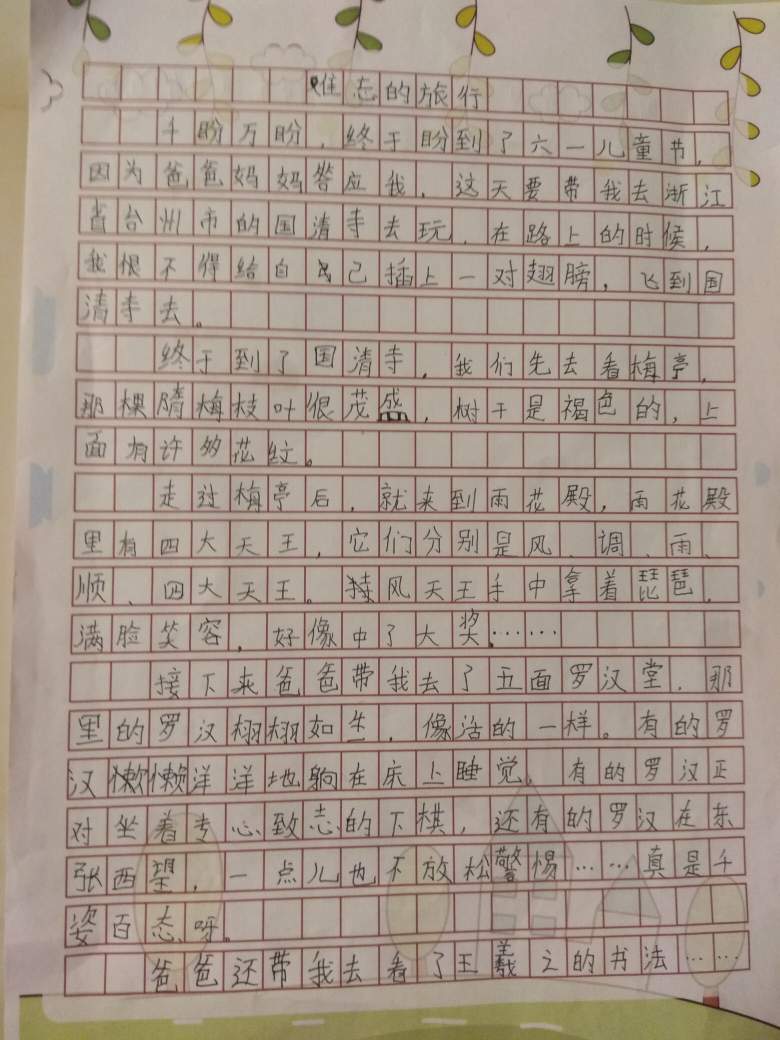 难忘的旅行
千盼万盼，终于盼到了六一儿童节，
因为爸爸妈妈答应我，这天要带我去浙江
省台州市的国清寺去玩，在路上的时候，
我恨不得给自己插上一对翅膀，飞到国
清寺去。
终于到了国清寺，我们先去看梅亭，
那棵隋梅枝叶很茂盛，树干是褐色的，上
面有许多花纹。
走过梅亭后，就来到雨花殿，雨花殿
里有四大天王，它们分别是风、调、雨、
顺、四大天王。持风天王手中拿着琵琶，
满脸笑容，好像中了大奖……
接下来爸爸带我去了五面罗汉堂，那
里的罗汉栩栩如生，像活的一样。有的罗
汉懒懒洋洋地躺在床上睡觉，有的罗汉正
对坐着专心致志的下棋，还有的罗汉在东
张西望，一点儿也不放松警惕……真是千
姿百态呀。
爸爸还带我去看了王羲之的书法……